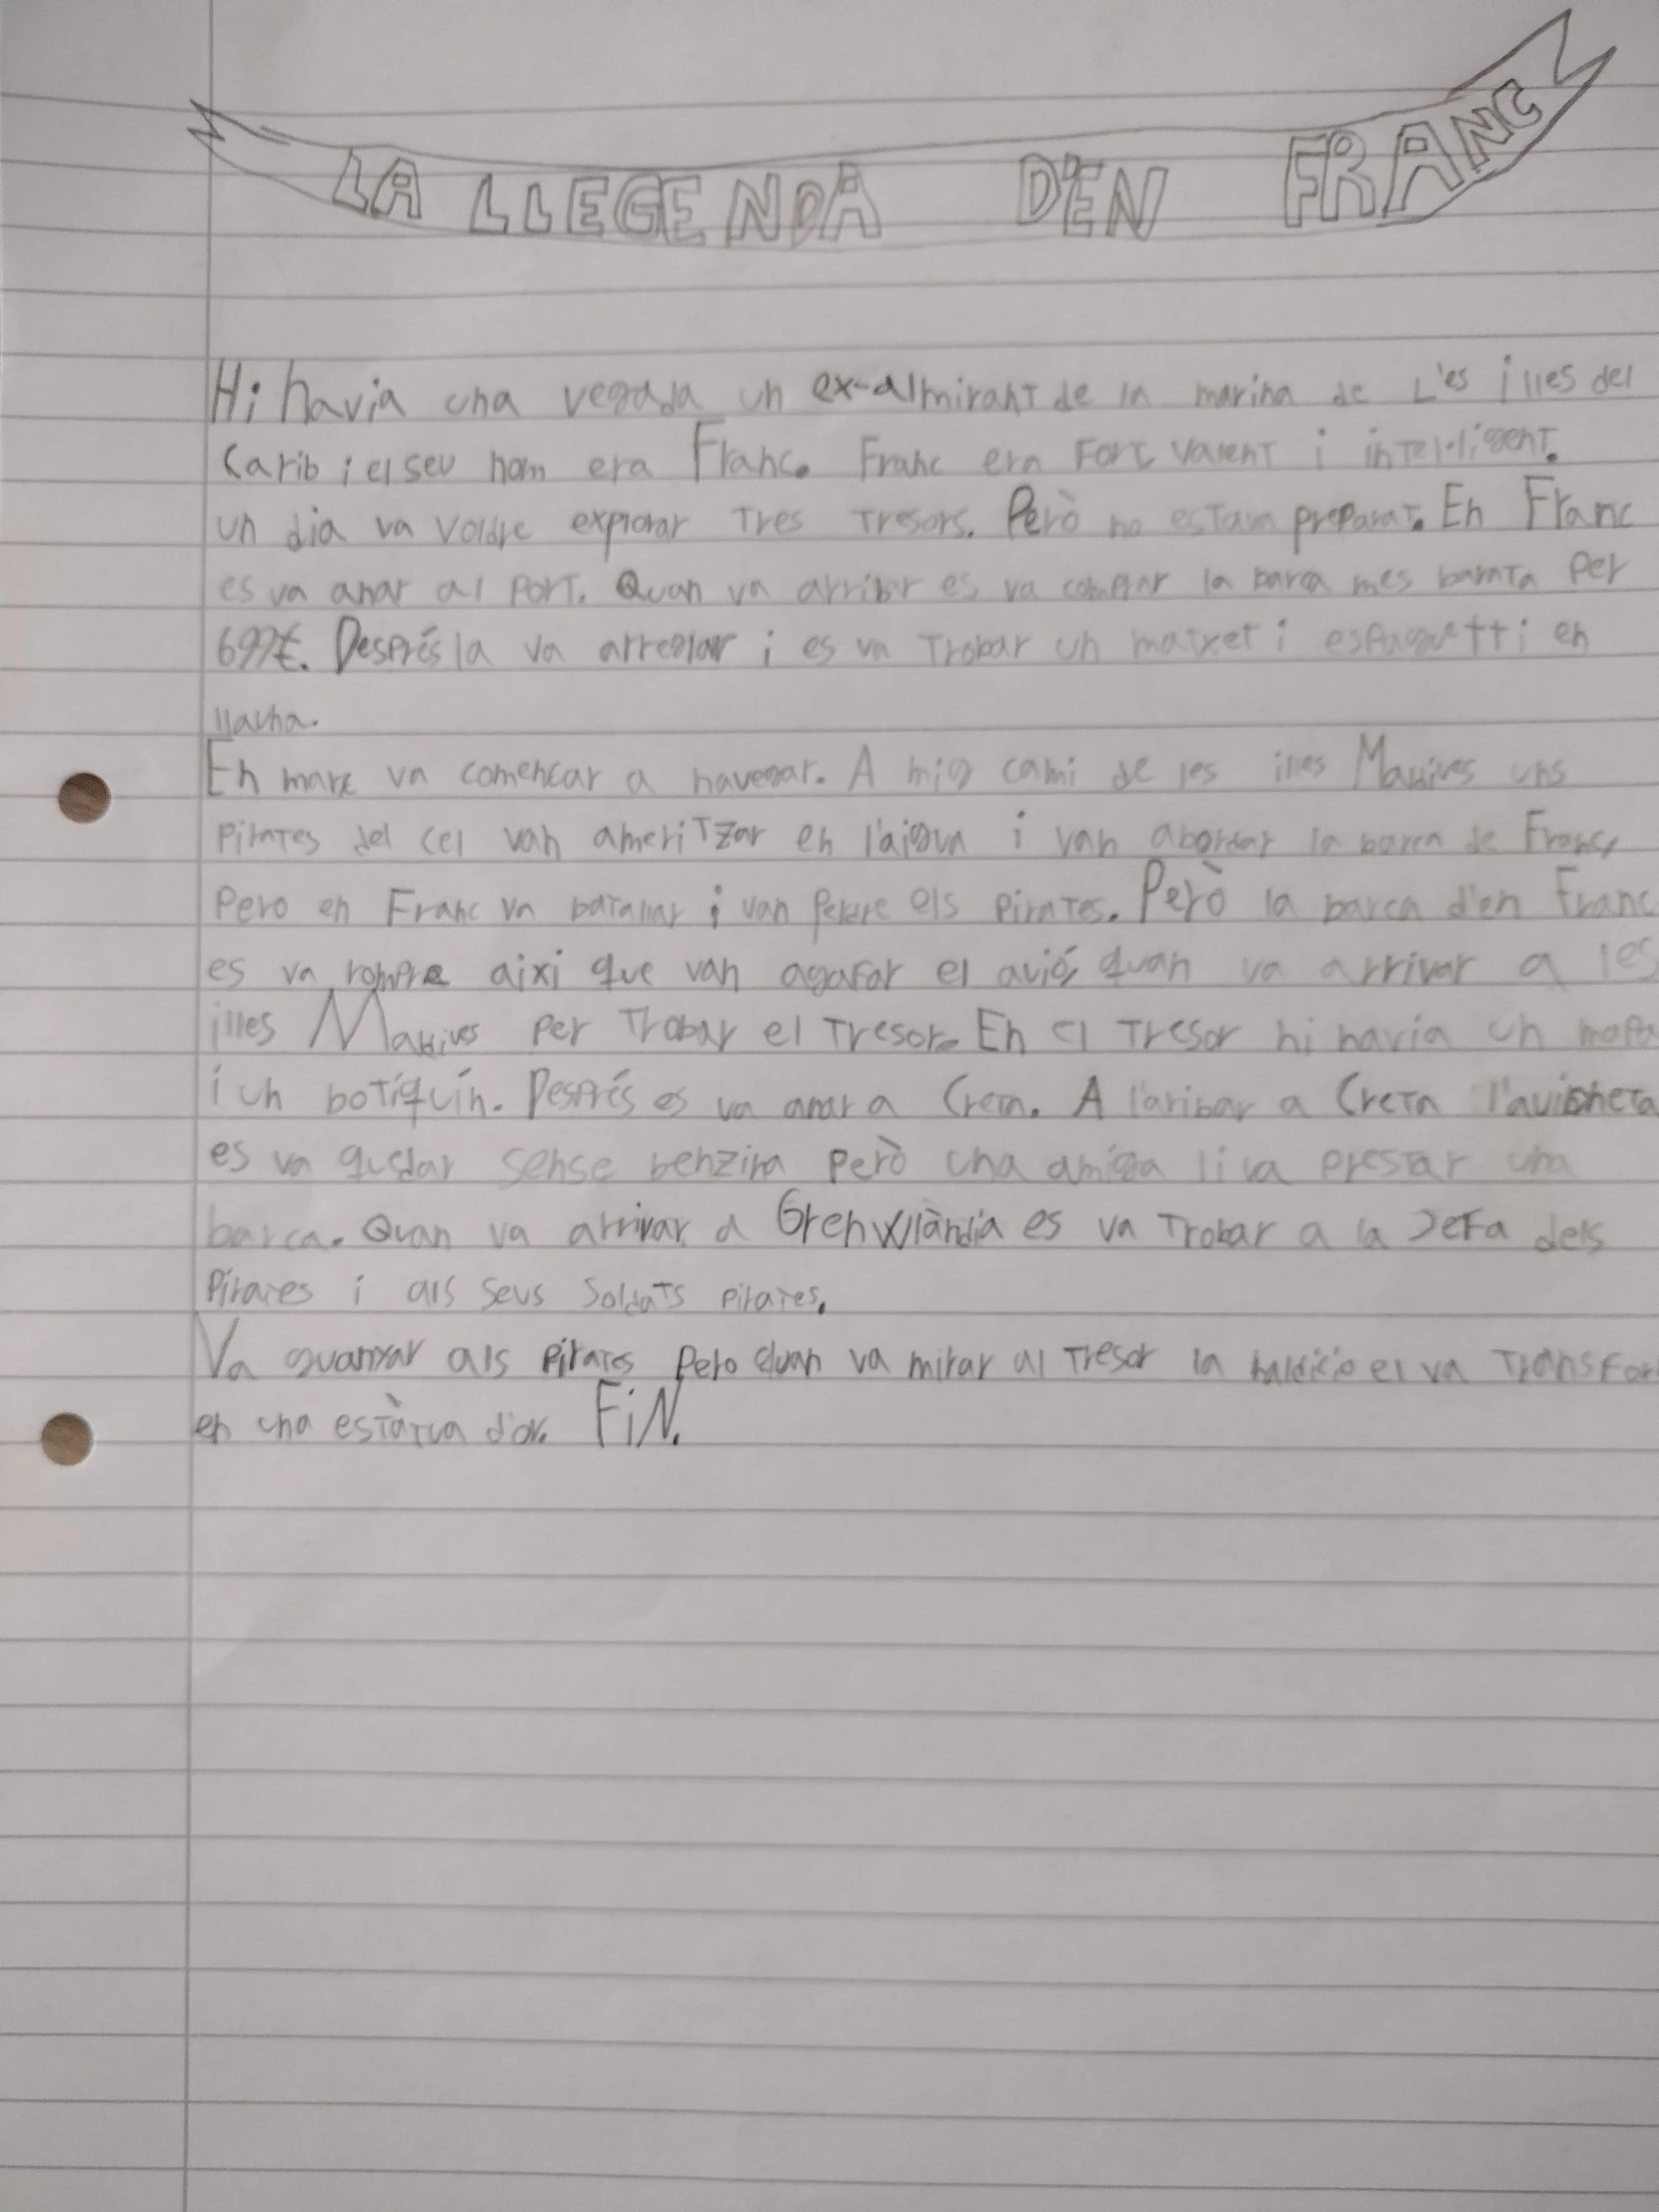 LA LLEGENDA D'EN FRANC
Hi havia una vegada un ex-almirant de la marina de L'es illes del
Carib i el seu nom era Franc. Franc era Fort, valent i intel·ligent.
un dia va voldre explorar tres tresors. Però no estava preparat. En Franc
es va anar al port. Quan va arribar es va comprar la barca mes barata per
699€. Després la va arreglar i es va trobar un matxet i espaguetti en
llauna.
En marc va comencar a navegar. A mig cami de les illes Maldives uns
pirates del cel van ameritzar en l'aigua i van abordar la barca de Franc,
pero en Franc va batallar i van perdre els pirates. Però la barca d'en Franc
es va rompre aixi que van agafar el avió, quan va arrivar a les
illes Maldives per trobar el tresor. En el tresor hi havia un mapa
i un botiquín. Després es va anar a Creta. A l'aribar a Creta l'avioneta
es va quedar sense benzina però una amiga li va prestar una
barca. Quan va arrivar a Grenwlàndia es va trobar a la Jefa dels
Pirates i als seus soldats pirates.
Va guanyar als pirates pero quan va mirar al tresor la maldicio el va transfor
en una estàtua d'or. FiN.